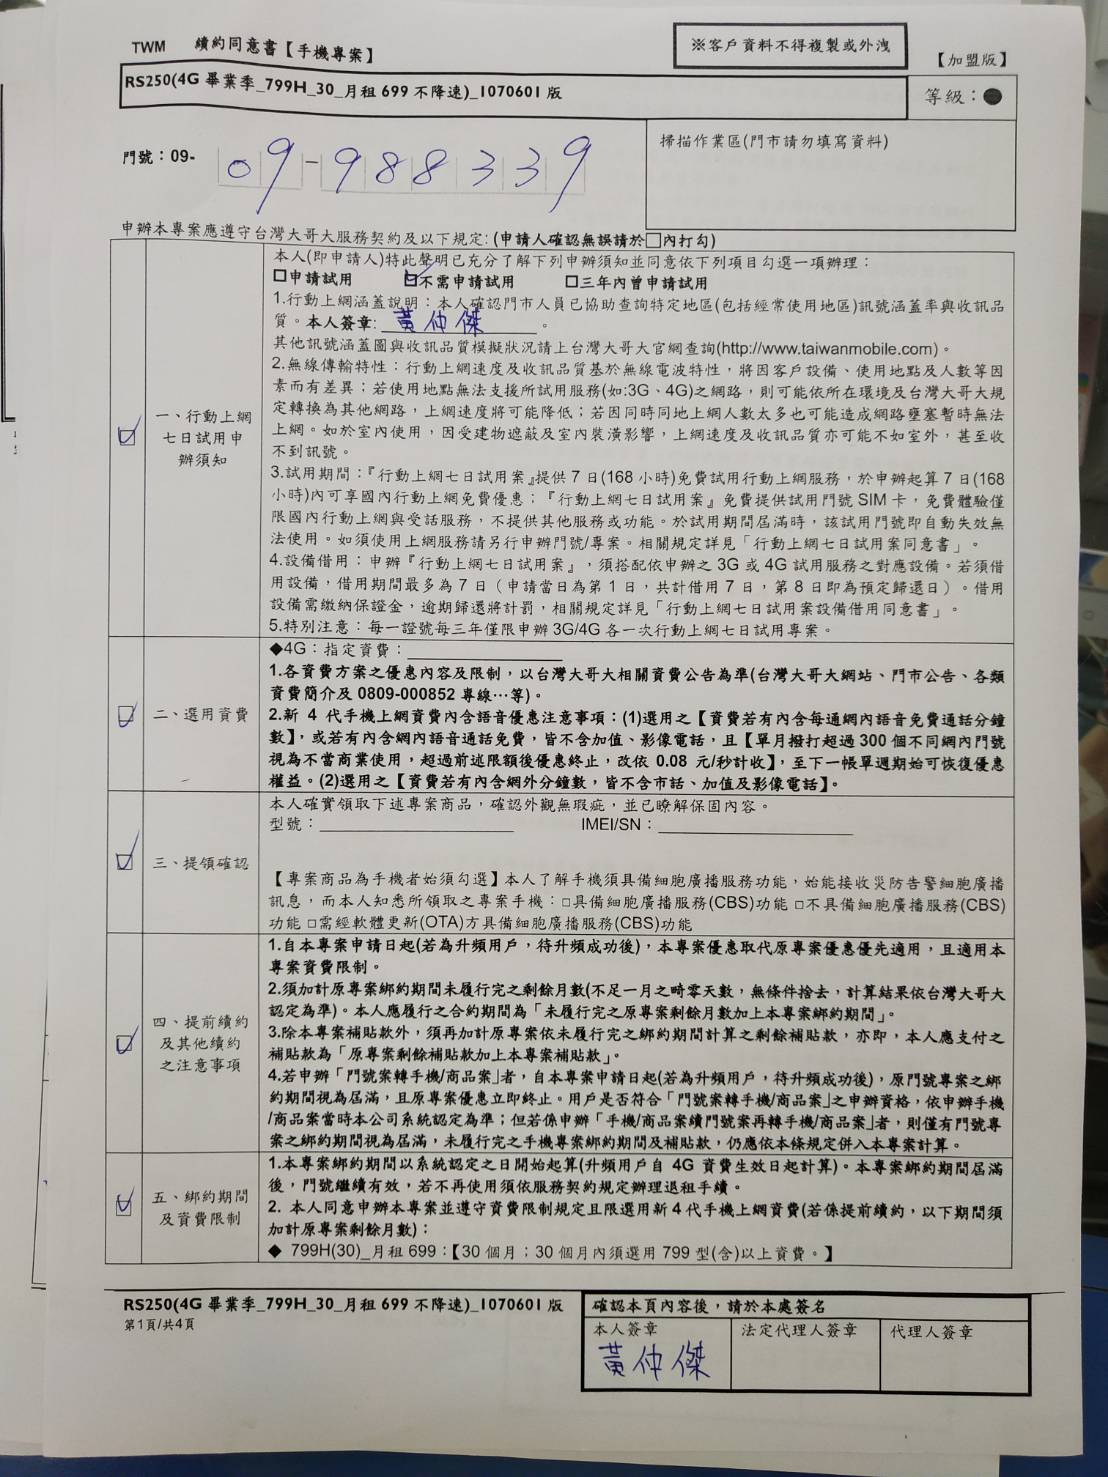 TWM 續約同意書【手機專案】
※客戶資料不得複製或外洩
【加盟版】
RS250(4G 畢業季_799H_30_月租 699 不降速)_1070601 版
等級：●
門號：09- 09-988339
掃描作業區(門市請勿填寫資料)
申辦本專案應遵守台灣大哥大服務契約及以下規定:(申請人確認無誤請於□內打勾)
一、行動上網
七日試用申
辦須知
本人(即申請人)特此聲明已充分了解下列申辦須知並同意依下列項目勾選一項辦理：
□申請試用 ☑不需申請試用 □三年內曾申請試用
1.行動上網涵蓋說明：本人確認門市人員已協助查詢特定地區(包括經常使用地區)訊號涵蓋率與收訊品
質。本人簽章: 黃仲傑 。
其他訊號涵蓋圖與收訊品質模擬狀況請上台灣大哥大官網查詢(http://www.taiwanmobile.com)。
2.無線傳輸特性：行動上網速度及收訊品質基於無線電波特性，將因客戶設備、使用地點及人數等因
素而有差異；若使用地點無法支援所試用服務(如:3G、4G)之網路，則可能依所在環境及台灣大哥大規
定轉換為其他網路，上網速度將可能降低；若因同時同地上網人數太多也可能造成網路壅塞暫時無法
上網。如於室內使用，因受建物遮蔽及室內裝潢影響，上網速度及收訊品質亦可能不如室外，甚至收
不到訊號。
3.試用期間：『行動上網七日試用案』提供 7 日(168 小時)免費試用行動上網服務，於申辦起算 7 日(168
小時)內可享國內行動上網免費優惠；『行動上網七日試用案』免費提供試用門號 SIM 卡，免費體驗僅
限國內行動上網與受話服務，不提供其他服務或功能。於試用期間屆滿時，該試用門號即自動失效無
法使用。如須使用上網服務請另行申辦門號/專案。相關規定詳見「行動上網七日試用案同意書」。
4.設備借用：申辦『行動上網七日試用案』，須搭配依申辦之 3G 或 4G 試用服務之對應設備。若須借
用設備，借用期間最多為 7 日（申請當日為第 1 日，共計借用 7 日，第 8 日即為預定歸還日）。借用
設備需繳納保證金，逾期歸還將計罰，相關規定詳見「行動上網七日試用案設備借用同意書」。
5.特別注意：每一證號每三年僅限申辦 3G/4G 各一次行動上網七日試用專案。
二、選用資費
◆4G：指定資費：
1.各資費方案之優惠內容及限制，以台灣大哥大相關資費公告為準(台灣大哥大網站、門市公告、各類
資費簡介及 0809-000852 專線…等)。
2.新 4 代手機上網資費內含語音優惠注意事項：(1)選用之【資費若有內含每通網內語音免費通話分鐘
數】，或若有內含網內語音通話免費，皆不含加值、影像電話，且【單月撥打超過 300 個不同網內門號
視為不當商業使用，超過前述限額後優惠終止，改依 0.08 元/秒計收】，至下一帳單週期始可恢復優惠
權益。(2)選用之【資費若有內含網外分鐘數，皆不含市話、加值及影像電話】。
三、提領確認
本人確實領取下述專案商品，確認外觀無瑕疵，並已瞭解保固內容。
型號： IMEI/SN：
【專案商品為手機者始須勾選】本人了解手機須具備細胞廣播服務功能，始能接收災防告警細胞廣播
訊息，而本人知悉所領取之專案手機：□具備細胞廣播服務(CBS)功能 □不具備細胞廣播服務(CBS)
功能 □需經軟體更新(OTA)方具備細胞廣播服務(CBS)功能
四、提前續約
及其他續約
之注意事項
1.自本專案申請日起(若為升頻用戶，待升頻成功後)，本專案優惠取代原專案優惠優先適用，且適用本
專案資費限制。
2.須加計原專案綁約期間未履行完之剩餘月數(不足一月之畸零天數，無條件捨去，計算結果依台灣大哥大
認定為準)。本人應履行之合約期間為「未履行完之原專案剩餘月數加上本專案綁約期間」。
3.除本專案補貼款外，須再加計原專案依未履行完之綁約期間計算之剩餘補貼款，亦即，本人應支付之
補貼款為「原專案剩餘補貼款加上本專案補貼款」。
4.若申辦「門號案轉手機/商品案」者，自本專案申請日起(若為升頻用戶，待升頻成功後)，原門號專案之綁
約期間視為屆滿，且原專案優惠立即終止。用戶是否符合「門號案轉手機/商品案」之申辦資格，依申辦手機
/商品案當時本公司系統認定為準；但若係申辦「手機/商品案續門號案再轉手機/商品案」者，則僅有門號專
案之綁約期間視為屆滿，未履行完之手機專案綁約期間及補貼款，仍應依本條規定併入本專案計算。
五、綁約期間
及資費限制
1.本專案綁約期間以系統認定之日開始起算(升頻用戶自 4G 資費生效日起計算)。本專案綁約期間屆滿
後，門號繼續有效，若不再使用須依服務契約規定辦理退租手續。
2. 本人同意申辦本專案並遵守資費限制規定且限選用新 4 代手機上網資費(若係提前續約，以下期間須
加計原專案剩餘月數)：
◆ 799H(30)_月租 699：【30 個月；30 個月內須選用 799 型(含)以上資費。】
RS250(4G 畢業季_799H_30_月租 699 不降速)_1070601 版
第1頁/共4頁
確認本頁內容後，請於本處簽名
本人簽章 法定代理人簽章 代理人簽章
黃仲傑